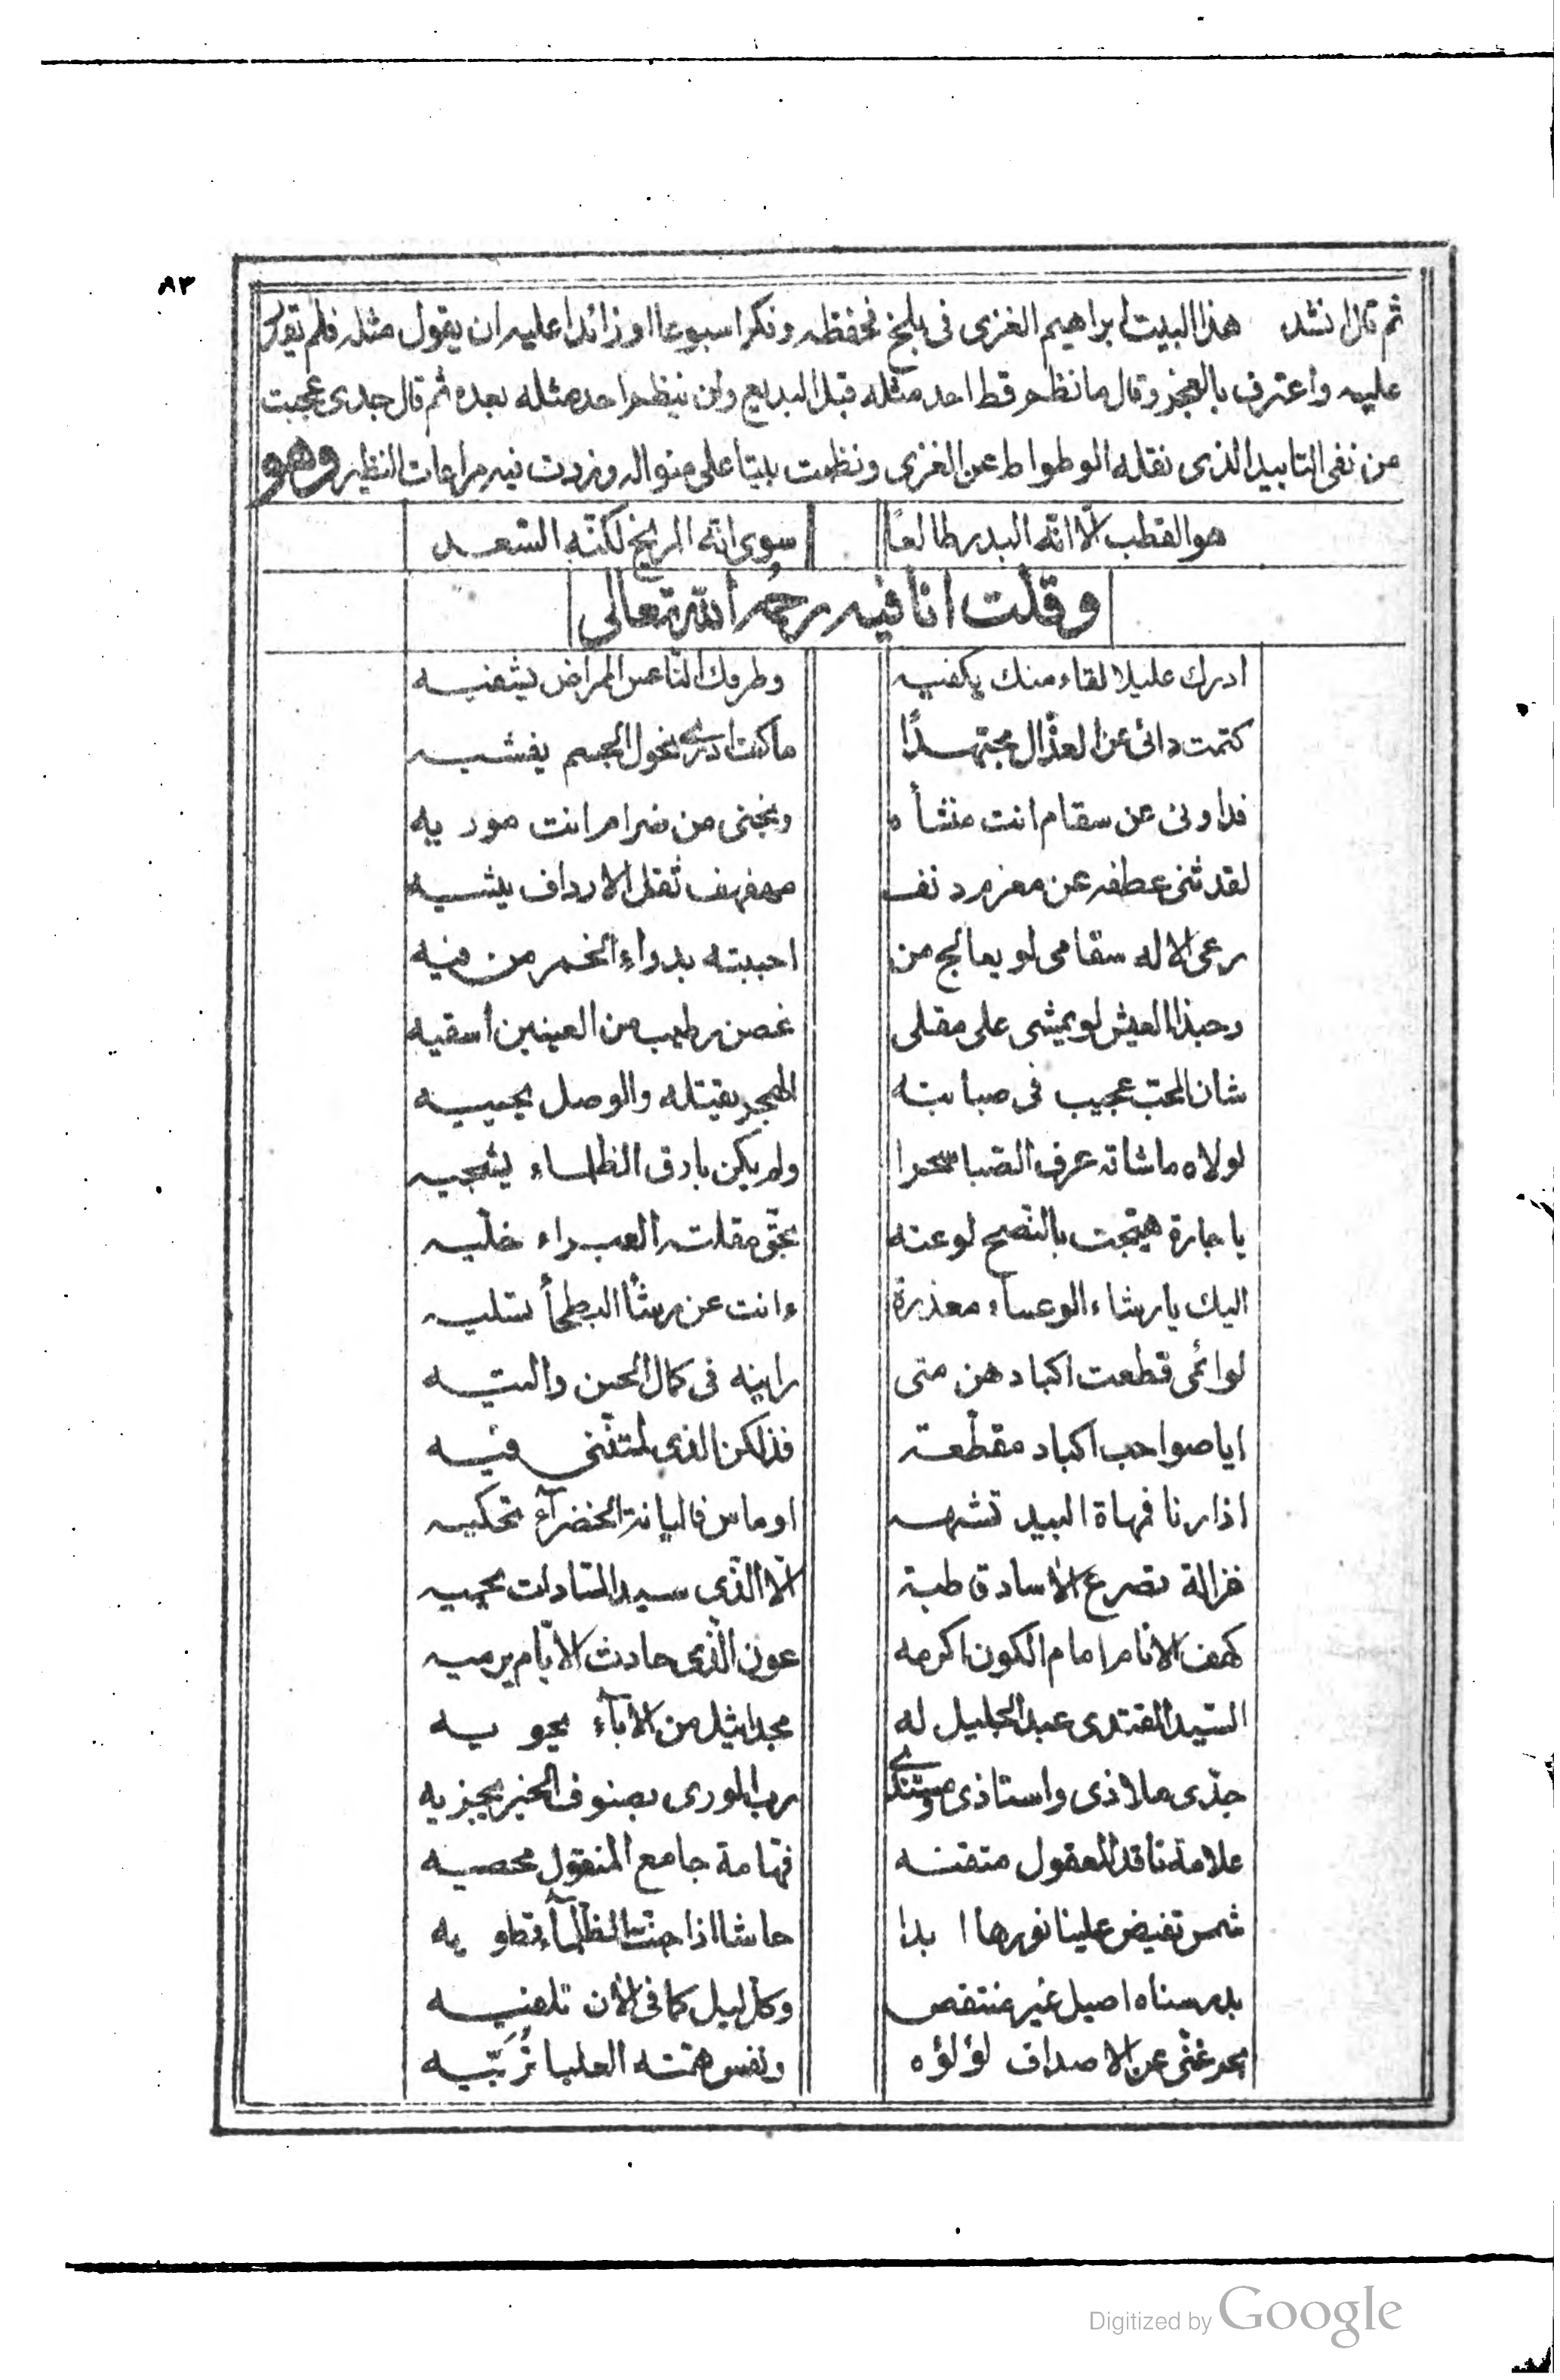 ٨٣
ثم قال انشد هذا البيت ابراهيم الغزى فى بلخ فحفظه وفكر اسبوعا او زائدا عليه ان يقول مثله فلم يقدر
عليه واعترف بالعجز وقال ما نظم قط احد مثله قبل البديع ولن ينظم احد مثله بعده ثم قال جدى عجبت
من نفى التابيد الذى نقله الوطواط عن الغزى ونظمت بيتا على منواله وزدت فيه مراعات النظير وهو
هو القطب الّا انّه البدر طالعًا سوى انّه المريخ لكنّه السّعد
وقلت انا فيه رحمه الله تعالى
ادرك عليلا لقاء منك يكفيه وطرفك النّاعس الممراض يشفيه
كتمت دائى عن العذّال مجتهدًا ما كنت ادرى نحول الجسم يفشيه
فداونى عن سقام انت منشأه ونجنى من ضرام انت موريه
لقد ثنى عطفه عن مغرم دنف مهفهف ثقل الارداف يثنيه
رعى الاله سقامى لو يعالج من احببته بدواء الخمر من فيه
وحبذا العيش لو يمشى على مقلى غصن رطيب من العينين اسقيه
شان المحب عجيب فى صبابته الهجر يقتله والوصل يحييه
لولاه ما شاقه عرف الصّبا سحرا ولم يكن بارق الظلماء يشجيه
يا جارة هيّجت بالنّصح لوعته بحقّ مقلته العبراء خلّيه
اليك يا رشاء الوعساء معذرة ءانت عن رشأ البطحأ تسليه
لوائمى قطعت اكبادهن متى راينه فى كمال الحسن والتيه
ايا صواحب اكباد مقطّعة فذلكن الذى لمتنّنى فيه
اذا رنا فمهاة البيد تشبهه او ماس فالبانة الخضرآء تحكيه
غزالة تصرع الاساد قاطبة الّا الّذى سيد السّادات يحميه
كهف الانام امام الكون اكرمه عون الّذى حادث الايّام يرميه
السّيد المقتدى عبد الجليل له مجد اثيل من الابآء يحويه
جدّى ملاذى واستاذى ومستندى رب الورى بصنوف الخير يجزيه
علامة ناقد المعقول متقنه فهّامة جامع المنقول محصيه
شمس تفيض علينا نورها ابدا حاشا اذا جنّت الظّلمآء تطويه
بدر سناه اصيل غير منتقص وكل ليل كما فى الان تلفيه
بحر غنّى عن الاصداف لؤلؤه ونفس همّته العليا تُرَبّيه
Digitized by Google